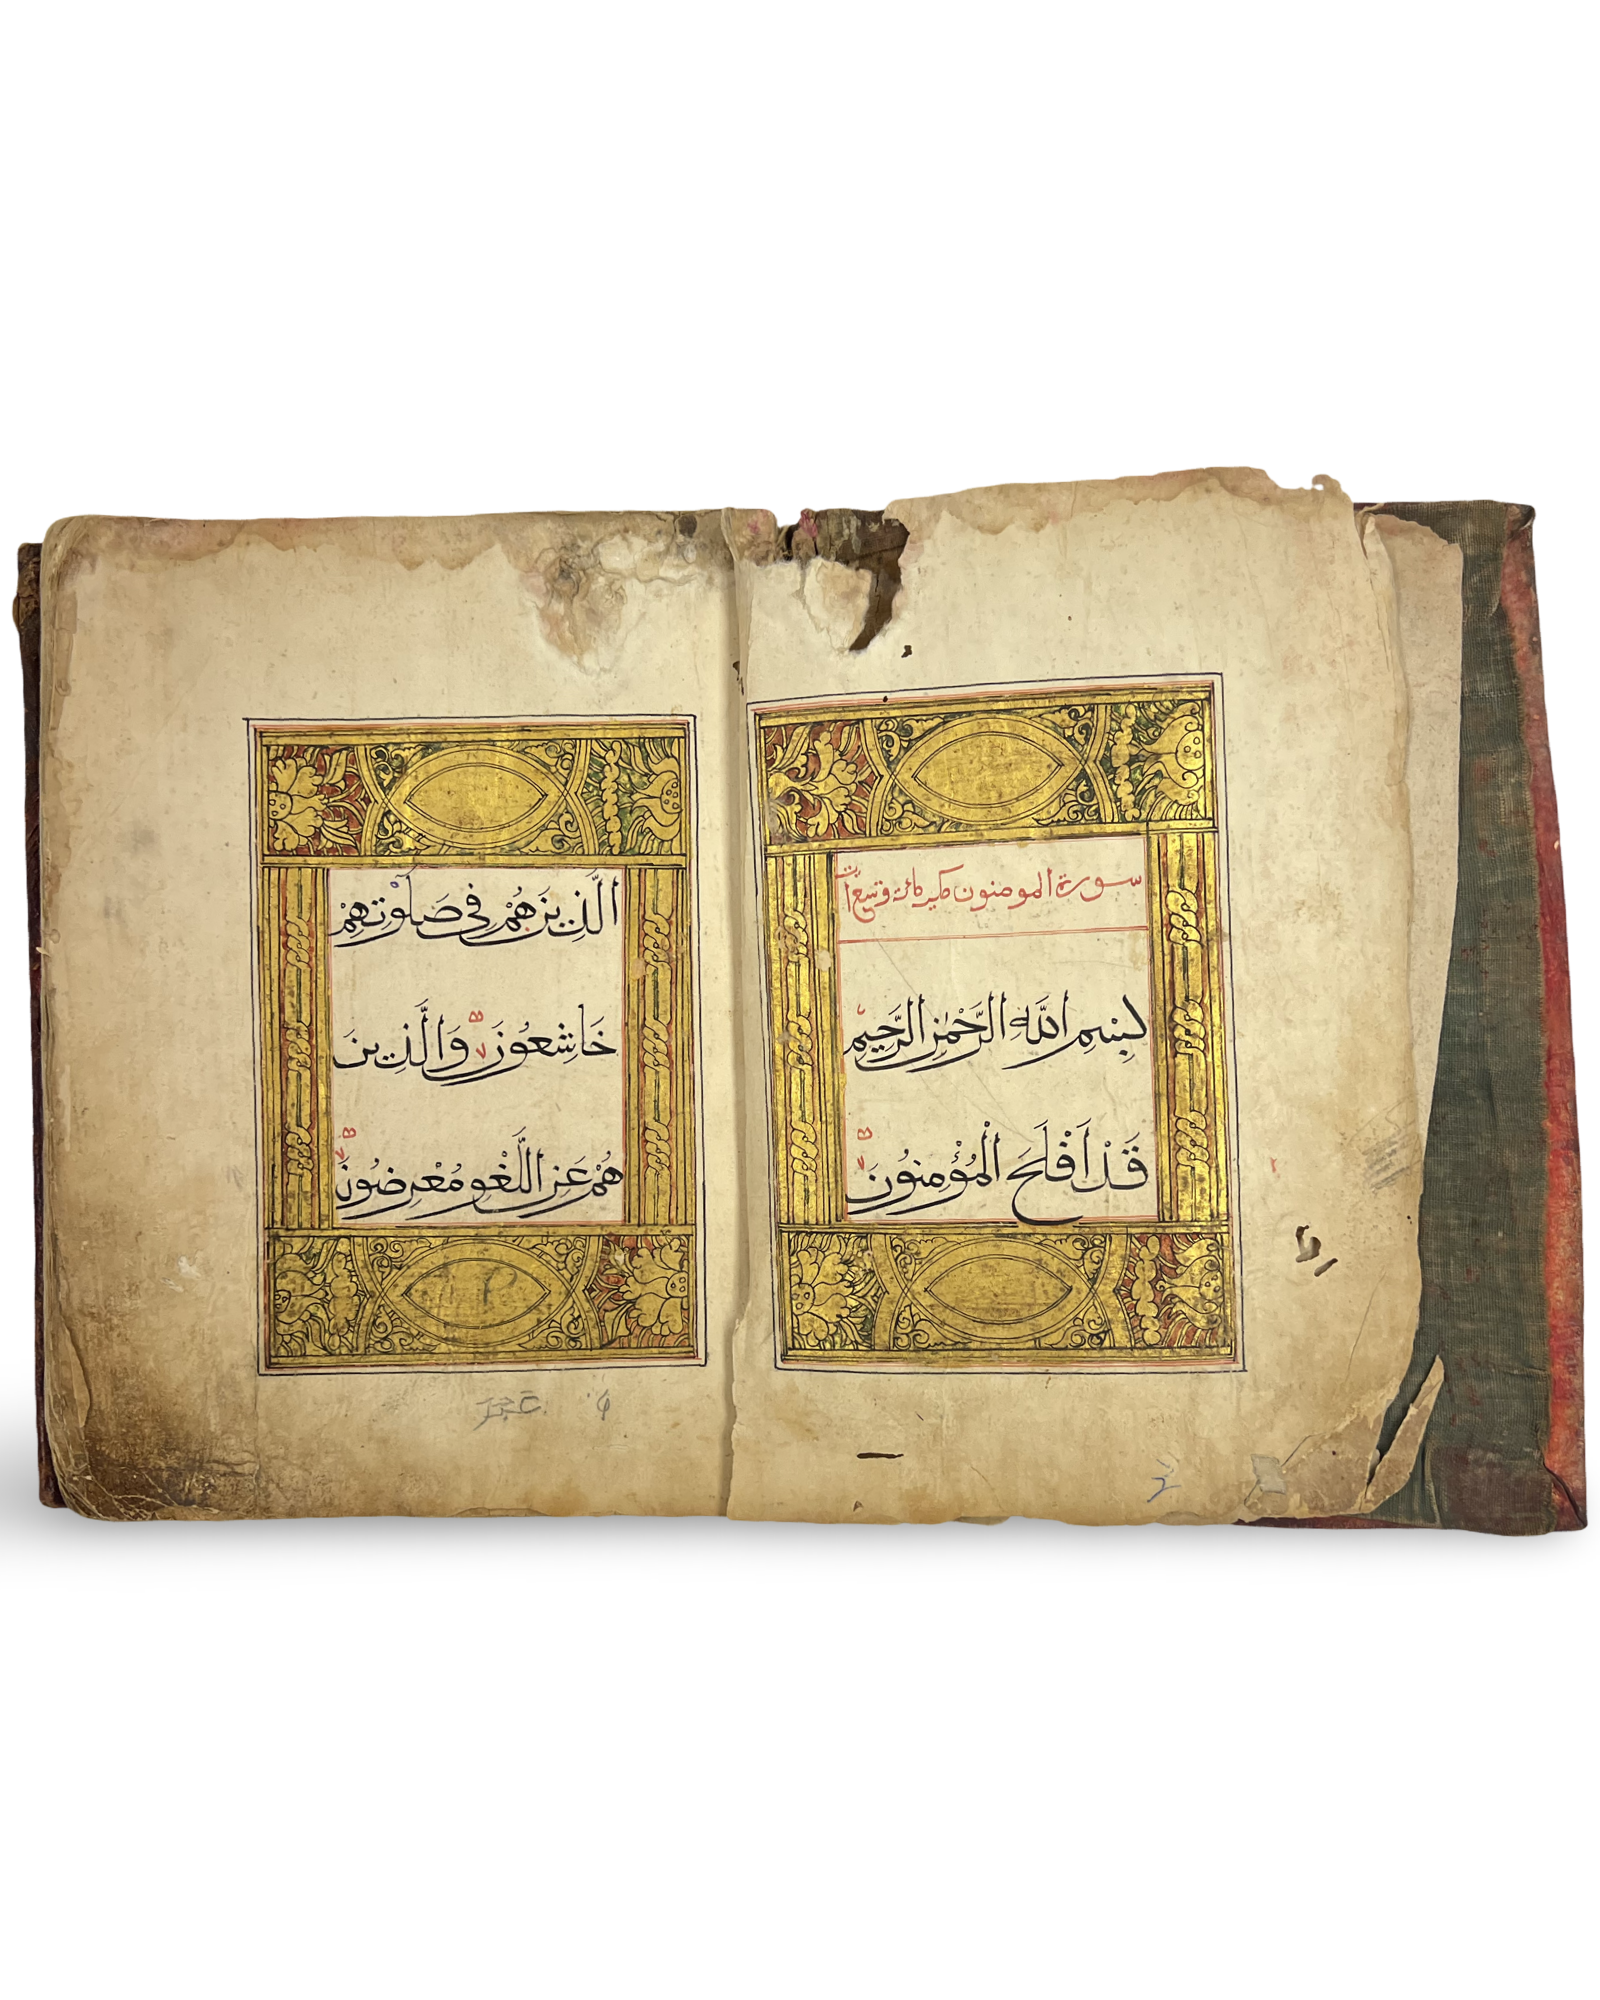 سورة المومنون مكية مائة وتسع
بِسْمِ اللّٰهِ الرَّحْمٰنِ الرَّحِيمِ
قَدْ اَفْلَحَ الْمُؤْمِنُونَ
الَّذِينَ هُمْ فِى صَلَوٰتِهِمْ
خَاشِعُونَ وَالَّذِينَ
هُمْ عَنِ اللَّغْوِ مُعْرِضُونَ